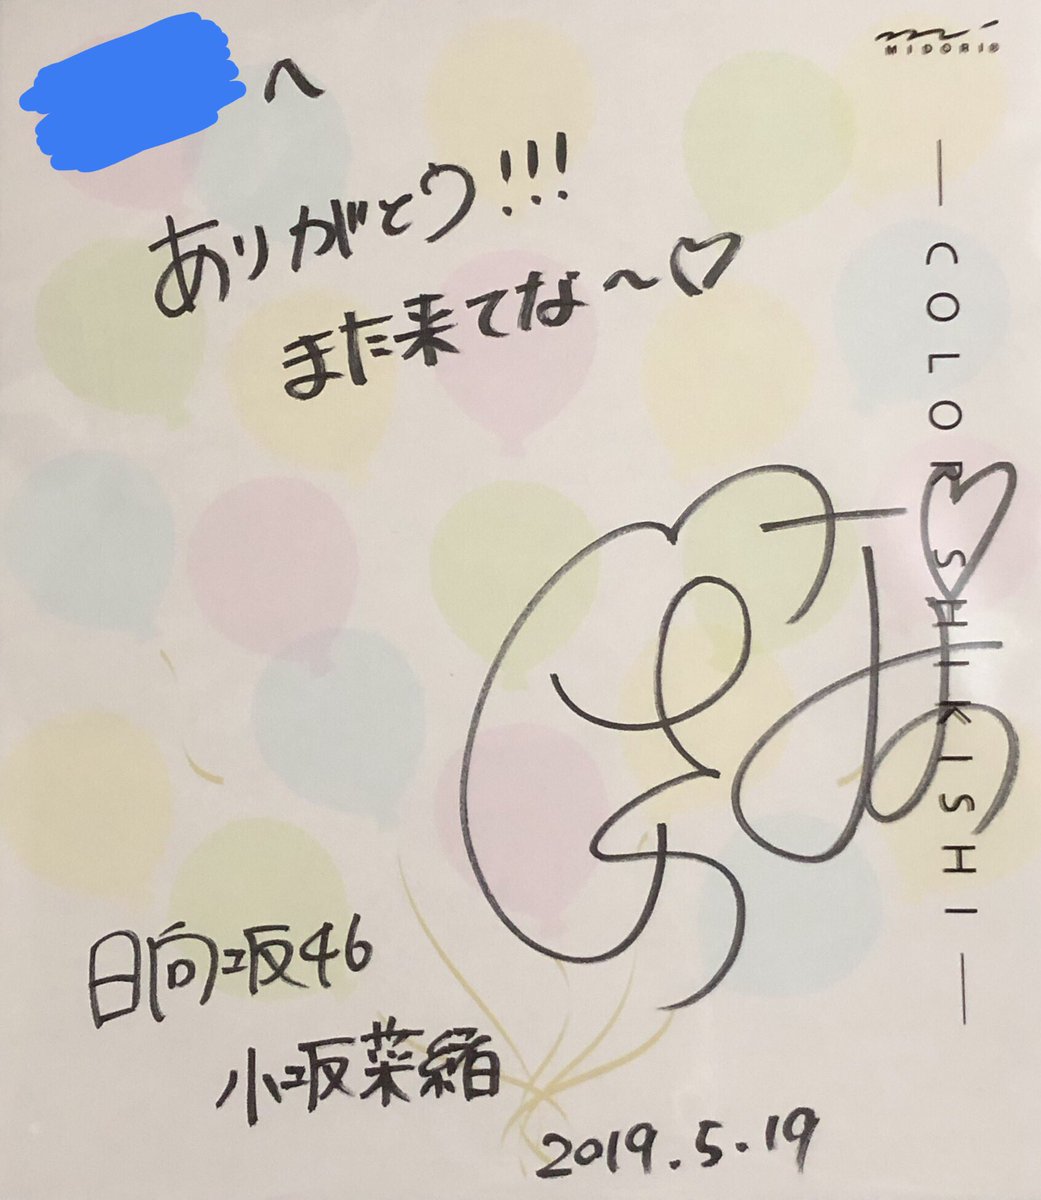 へ
ありがとう!!!
まだ来てな〜♡
日向坂46
小坂菜緒
2019.5.19
MIDORI®
— COLOR SHIKISHI —